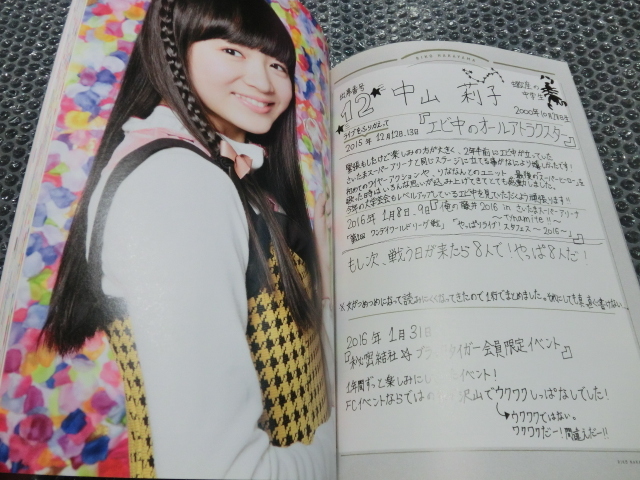 RIKO NAKAYAMA
出席番号
12
中山 莉子
中学生
2000年10月28日生
ライブをふりかえって
2015年12月12日,13日『エビ中のオールアトラクスター』
緊張もしたけど楽しみの方が大きく、2年半前にエビ中が立ってた
さいたまスーパーアリーナと同じステージに立てる事がなにより嬉しかったです!
初めてのワイヤーアクションや、りななんとのユニット
歌った時はいろんな思いが込み上げてきてとても感動しました。
今年の大学芸会もレベルアップしているエビ中を見ていただけるよう頑張ります!!
2016年1月8日、9日『俺の藤井2016 in さいたまスーパーアリーナ
〜Tynamite!!〜』
「第1回 ワンデイワールドリーグ戦」「やっぱりライブ!スタフェス〜2015〜」
もし次、戦う日が来たら8人で!やっぱ8人だ!
2016年1月31日
会員限定イベント』
1年間ずっと楽しみにし イベント!
FCイベントならでは 沢山でウクワクしっぱなしでした!
ウクワクではない。
ワクワクだー!間違えたー!!